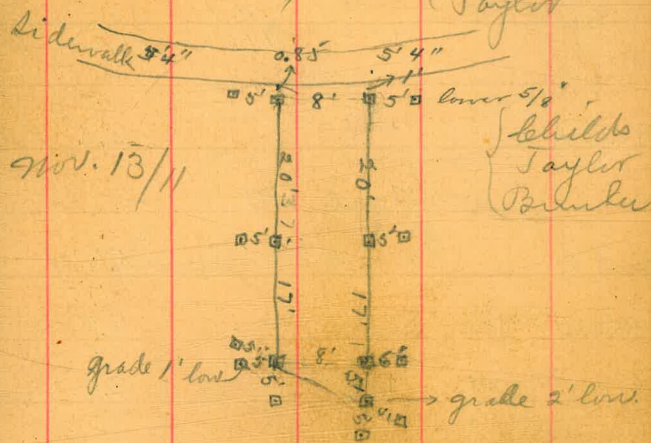 Taylor
Sidewalk 5'4" 0.85' 5'4"
1'
5' 8' 5' lower 5/8"
Childs
Taylor
Nov. 13/11
20' 37' 20'
5' 5'
17' 17'
5'
5' 8' 6"
grade 1' low
5' 5'
grade 2' low.
5'